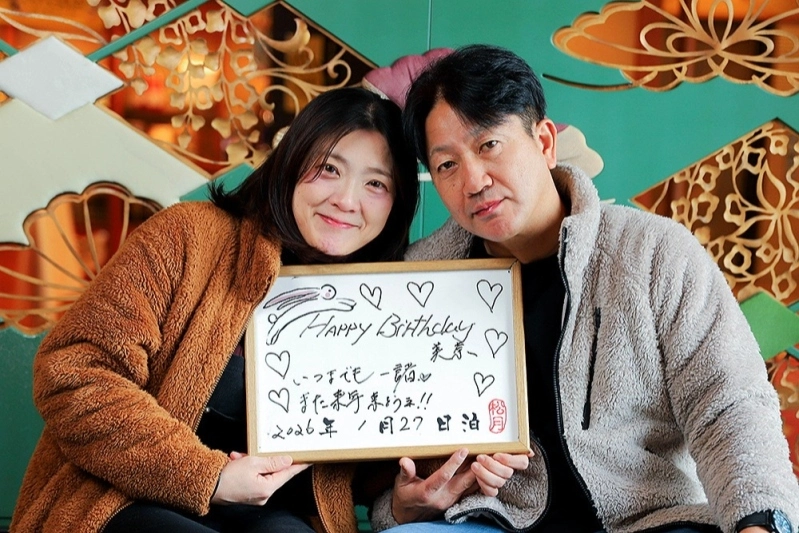 HAPPY Birthday
美奈へ
いつまでも一諸
また来年来ようネ!!
2026年 1月27日泊
松月